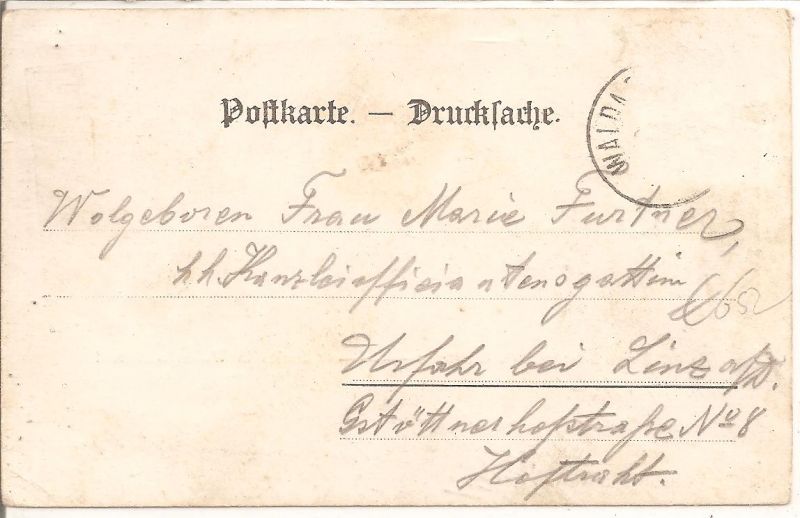 Postkarte. — Drucksache.
WALDA
Wolgeboren Frau Marie Furtner,
k.k. Kanzleiofficiantensgattin
Urfahr bei Linz a/D.
Gstöttnerhofstraße No 8